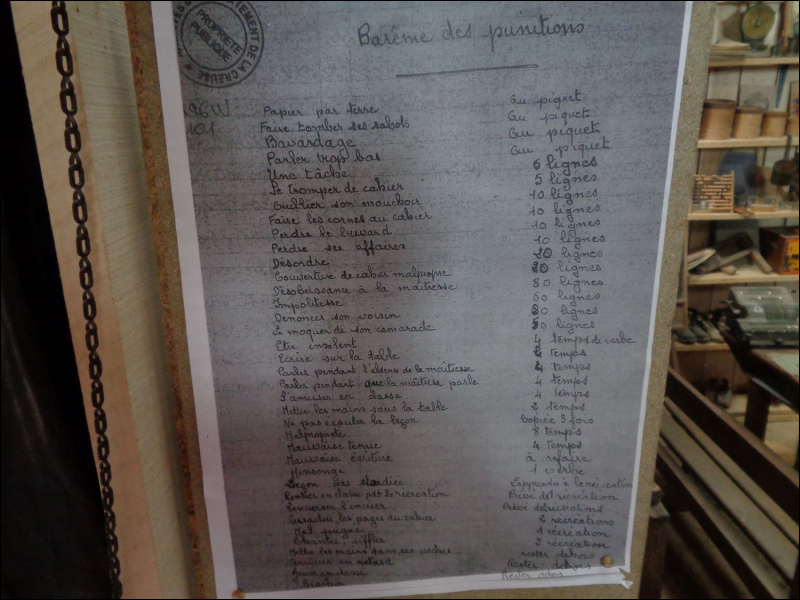 DEPARTEMENT DE LA CREUSE
PROPRIÉTÉ PUBLIQUE
Barême des punitions
Papier par terre Au piquet
Faire tomber ses sabots Au piquet
Bavardage Au piquet
Parler trop bas Au piquet
Une tâche 5 lignes
Se tromper de cahier 5 lignes
Oublier son mouchoir 10 lignes
Faire les cornes au cahier 10 lignes
Perdre le buvard 10 lignes
Perdre ses affaires 10 lignes
Désordre lignes
Couverture de cahier malpropre lignes
Désobeissance à la maîtresse lignes
Impolitesse 50 lignes
Denoncer son voisin lignes
Se moquer de son camarade 50 lignes
Etre insolent 4 temps de verbe
Ecrire sur la table temps
Parler pendant l'absence de la maîtresse temps
Parler pendant que la maîtresse parle 4 temps
S'amuser en classe 4 temps
Mettre les mains sous la table 2 temps
Ne pas ecouter la leçon Copiée 3 fois
Malpropreté 8 temps
Mauvaise tenue 4 temps
Mauvaise écriture à refaire
Mensonge 1 verbe
Leçon pas étudiée L'apprendre à la récréation
Rentrer en classe pdt la récréation Privé de récréation
Renverser l'encrier Privé de récréations
les pages du cahier 2 récréations
Mal peigné 1 récréation
Chanter, siffler 2 récréations
Mettre les mains dans ses poches rester dehors
Arriver en retard Rester dehors
Rester dehors